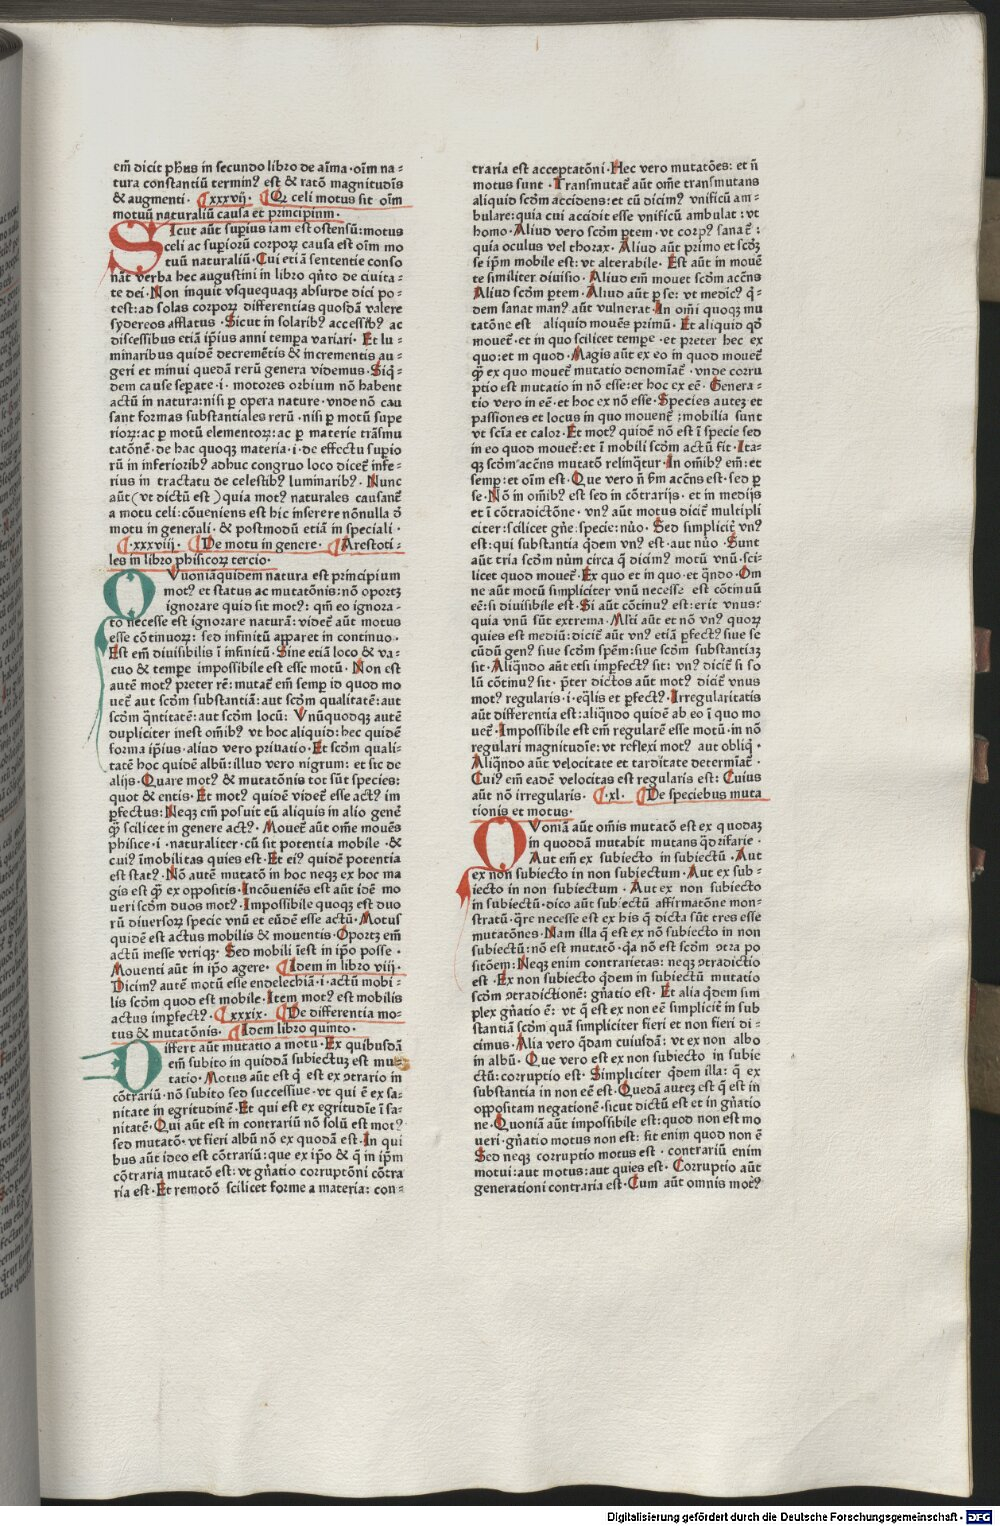 em̄ dicit ph̄us in secundo libro de aīma·oīm na⸗
tura constantiū terminꝰ est & ratō magnitudīs
& augmenti· ¶xxxvij· ¶Qꝫ celi motus sit oīm
motuū naturaliū causa et principium·
SIcut aūt superius iam est ostensū:motus
celi ac superiorū corporꝝ causa est oīm mo
tuū naturaliū·Cui etiā sententie conso
nāt verba hec augustini in libro qn̄to de ciuita⸗
te dei·Non inquit vsquequaqꝫ absurde dici po⸗
test:ad solas corporꝝ differentias quosdā valere
sydereos afflatus ·Sicut in solaribꝰ accessibꝰ ac
discessibus etiā ip̄ius anni tempa variari· Et lu⸗
minaribus quidē decremētis & incrementis au⸗
geri et minui quedā rerū genera videmus·Siq̄⸗
dem cause seꝑate·i·motores orbium nō habent
actū in natura:nisi ꝑ opera nature·vnde nō cau
sant formas substantiales rerū·nisi ꝑ motū supe
riorꝝ:ac ꝑ motū elementorꝝ:ac ꝑ materie trāsmu
tatōnē·de hac quoqꝫ materia·i·de effectu superio
rū in inferioribꝰ adhuc congruo loco dicet̄ infe⸗
rius in tractatu de celestibꝰ luminaribꝰ·Nunc
aūt(vt dictū est)quia motꝰ naturales causant̄
a motu celi:cōueniens est hic inserere nōnulla ð
motu in generali·& postmodū etiā in speciali·
¶·xxxviij· ¶De motu in genere· ¶Arestoti⸗
les in libro phisicorꝝ tercio·
QVuoniāquidem natura est principium
motꝰ et status ac mutatōnis:nō oportꝫ
ignorare quid sit motꝰ: qm̄ eo ignora⸗
to necesse est ignorare naturā: videt̄ aūt motus
esse cōtinuorꝝ: sed infinitū apparet in continuo·
Est em̄ diuisibilis ī infinitū·Sine etiā loco & va⸗
cuo & tempe impossibile est esse motū·Non est
autē motꝰ preter rē: mutat̄ em̄ semꝑ id quod mo
uet̄ aut scōm substantiā: aut scōm qualitatē:aut
scōm q̄ntitatē:aut scōm locū: Vnūquodqꝫ autē
dupliciter inest om̄ibꝰ vt hoc aliquid:hec quidē
forma ip̄ius·aliud vero priuatio·Et scōm quali⸗
tatē hoc quidē albū:illud vero nigrum: et sic de
alijs·Quare motꝰ & mutatōnis tot sūt species:
quot & entis·Et motꝰ quidē videt̄ esse actꝰ im
ꝑfectus:Neqꝫ em̄ posuit eū aliquis in alio genē
q̄ꝫ scilicet in genere actꝰ·Mouet̄ aūt om̄e mouēs
phisice·i·naturaliter·cū sit potentia mobile ·&
cuiꝰ īmobilitas quies est·Et eiꝰ quidē potentia
est statꝰ·Nō autē mutatō in hoc neqꝫ ex hoc ma
gis est q̄ꝫ ex oppositis·Incōueniēs est aūt idē mo
ueri scōm duos motꝰ·Impossibile quoqꝫ est duo
rū diuersorꝝ specie vnū et eūdē esse actū·Motus
quidē est actus mobilis & mouentis·Oportꝫ em̄
actū inesse vtriqꝫ· Sed mobili īest in ip̄o posse·
Mouenti aūt in ip̄o agere· ¶Idem in libro viij·
Dicimꝰ autē motū esse endelechiā·i·actū mobi⸗
lis scōm quod est mobile·Item motꝰ est mobilis
actus imꝑfectꝰ· ¶xxxix· ¶De differentia mo⸗
tus & mutatōnis· ¶Idem libro quinto·
DIffert aūt mutatio a motu·Ex quibusdā
em̄ subito in quiddā subiectuꝫ est mu⸗
tatio·Motus aūt est q̄ est ex ꝯtrario in
cōtrariū·nō subito sed successiue·vt qui ē ex sa⸗
nitate in egritudinē·Et qui est ex egritudīe ī sa⸗
nitatē·Qui aūt est in contrariū nō solū est motꝰ
sed mutatō·vt fieri albū nō ex quodā est·In qui
bus aūt ideo est cōtrariū:que ex ip̄o & q̄ in ip̄m
cōtraria mutatō est:vt gn̄atio corruptōni cōtra
ria est·Et remotō scilicet forme a materia: con⸗
traria est acceptatōni·Hec vero mutatōes: et n̄
motus sunt ·Transmutat̄ aūt om̄e transmutans
aliquid scōm accidens:et cū dicimꝰ vnificū am⸗
bulare:quia cui accidit esse vnificū ambulat:vt
homo·Aliud vero scōm ꝑtem·vt corpꝰ sanat̄:
quia oculus vel thorax·Aliud aūt primo et scōꝫ
se ip̄m mobile est: vt alterabile·Est aūt in mouē
te similiter diuisio·Aliud em̄ mouet scōm accn̄s
Aliud scōm ꝑtem·Aliud aūt ꝑ se: vt medicꝰ q̄⸗
dem sanat manꝰ aūt vulnerat·In om̄i quoqꝫ mu
tatōne est aliquid mouēs primū·Et aliquid qð
mouet̄·et in quo scilicet tempe·et preter hec ex
quo:et in quod·Magis aūt ex eo in quod mouet̄
q̄ꝫ ex quo mouet̄ mutatio denomīat̄·vnde corru
ptio est mutatio in nō esse:et hoc ex eē·Genera⸗
tio vero in eē·et hoc ex nō esse·Species auteꝫ et
passiones et locus in quo mouent̄:mobilia sunt
vt scīa et calor·Et motꝰ quidē nō est ī specie sed
in eo quod mouet̄:et ī mobili scōm actū sit·Ita⸗
qꝫ scōm accn̄s mutatō relinq̄tur·In om̄ibꝰ em̄:et
semꝑ:et oīm est·Que vero n̄ sm̄ accn̄s est·sed ꝑ
se·Nō in om̄ibꝰ est sed in cōtrarijs· et in medijs
et ī cōtradictōne· vnꝰ aūt motus dicit̄ multipli
citer:scilicet gn̄e:specie:nūo· Sed simplicit̄ vnꝰ
est:qui substantia q̄dem vnꝰ est·aut nūo ·Sunt
aūt tria scōm nūm circa q̄ dicimꝰ motū vnū·sci⸗
licet quod mouet̄·Ex quo et in quo·et q̄ndo·Om
ne aūt motū simpliciter vnū necesse est cōtinuū
eē:si diuisibile est·Si aūt cōtinuꝰ est:erit vnus:
quia vnū sūt extrema·Msti aūt et nō vnꝰ quorꝝ
quies est mediū:dicit̄ aūt vnꝰ etiā ꝑfectꝰ siue se
cūdū genꝰ siue scōm spēm:siue scōm substantiaꝫ
sit·Aliq̄ndo aūt etsi imꝑfectꝰ sit: vnꝰ dicit̄ si so
lū cōtinuꝰ sit· p̄ter dictos aūt motꝰ dicit̄ vnus
motꝰ regularis·i·eq̄lis et ꝑfectꝰ·Irregularitatis
aūt differentia est:aliq̄ndo quidē ab eo ī quo mo
uet̄·Impossibile est em̄ regularē esse motū·in nō
regulari magnitudīe:vt reflexi motꝰ aut obliq̄ ·
Aliq̄ndo aūt velocitate et tarditate determīat̄·
Cuiꝰ em̄ eadē velocitas est regularis est: Cuius
aūt nō irregularis· ¶·xl· ¶De speciebus muta
tionis et motus·
QVoniā aūt om̄is mutatō est ex quodaꝫ
in quoddā mutabit mutans q̄drifarie·
Aut em̄ ex subiecto in subiectū·Aut
ex non subiecto in non subiectum·Aut ex sub⸗
iecto in non subiectum ·Aut ex non subiecto
in subiectū·dico aūt subiectū affirmatōne mon⸗
stratū·q̄re necesse est ex his q̄ dicta sūt tres esse
mutatōnes·Nam illa q̄ est ex nō subiecto in non
subiectū:nō est mutatō·q̄a nō est scōm ꝯtra po
sitōem:Neqꝫ enim contrarietas: neqꝫ ꝯtradictio
est ·Ex non subiecto q̄dem in subiectū mutatio
scōm ꝯtradictionē: gn̄atio est· Et alia q̄dem sim
plex gn̄atio ē: vt q̄ est ex non eē simplicit̄ in sub
stantiā scōm quā simpliciter fieri et non fieri di⸗
cimus·Alia vero q̄dam cuiusdā: vt ex non albo
in albū· Que vero est ex non subiecto in subie
ctū:corruptio est· Simpliciter q̄dem illa: q̄ ex
substantia in non eē est·Quedā auteꝫ est q̄ est in
oppositam negationē·sicut dictū est et in gn̄atio
ne·Quoniā aūt impossibile est:quod non est mo
ueri·gn̄atio motus non est: sit enim quod non ē
Sed neqꝫ corruptio motus est· contrariū enim
motui:aut motus:aut quies est· Corruptio aūt
generationi contraria est·Cum aūt omnis motꝰ
Digitalisierung gefördert durch die Deutsche Forschungsgemeinschaft · DFG